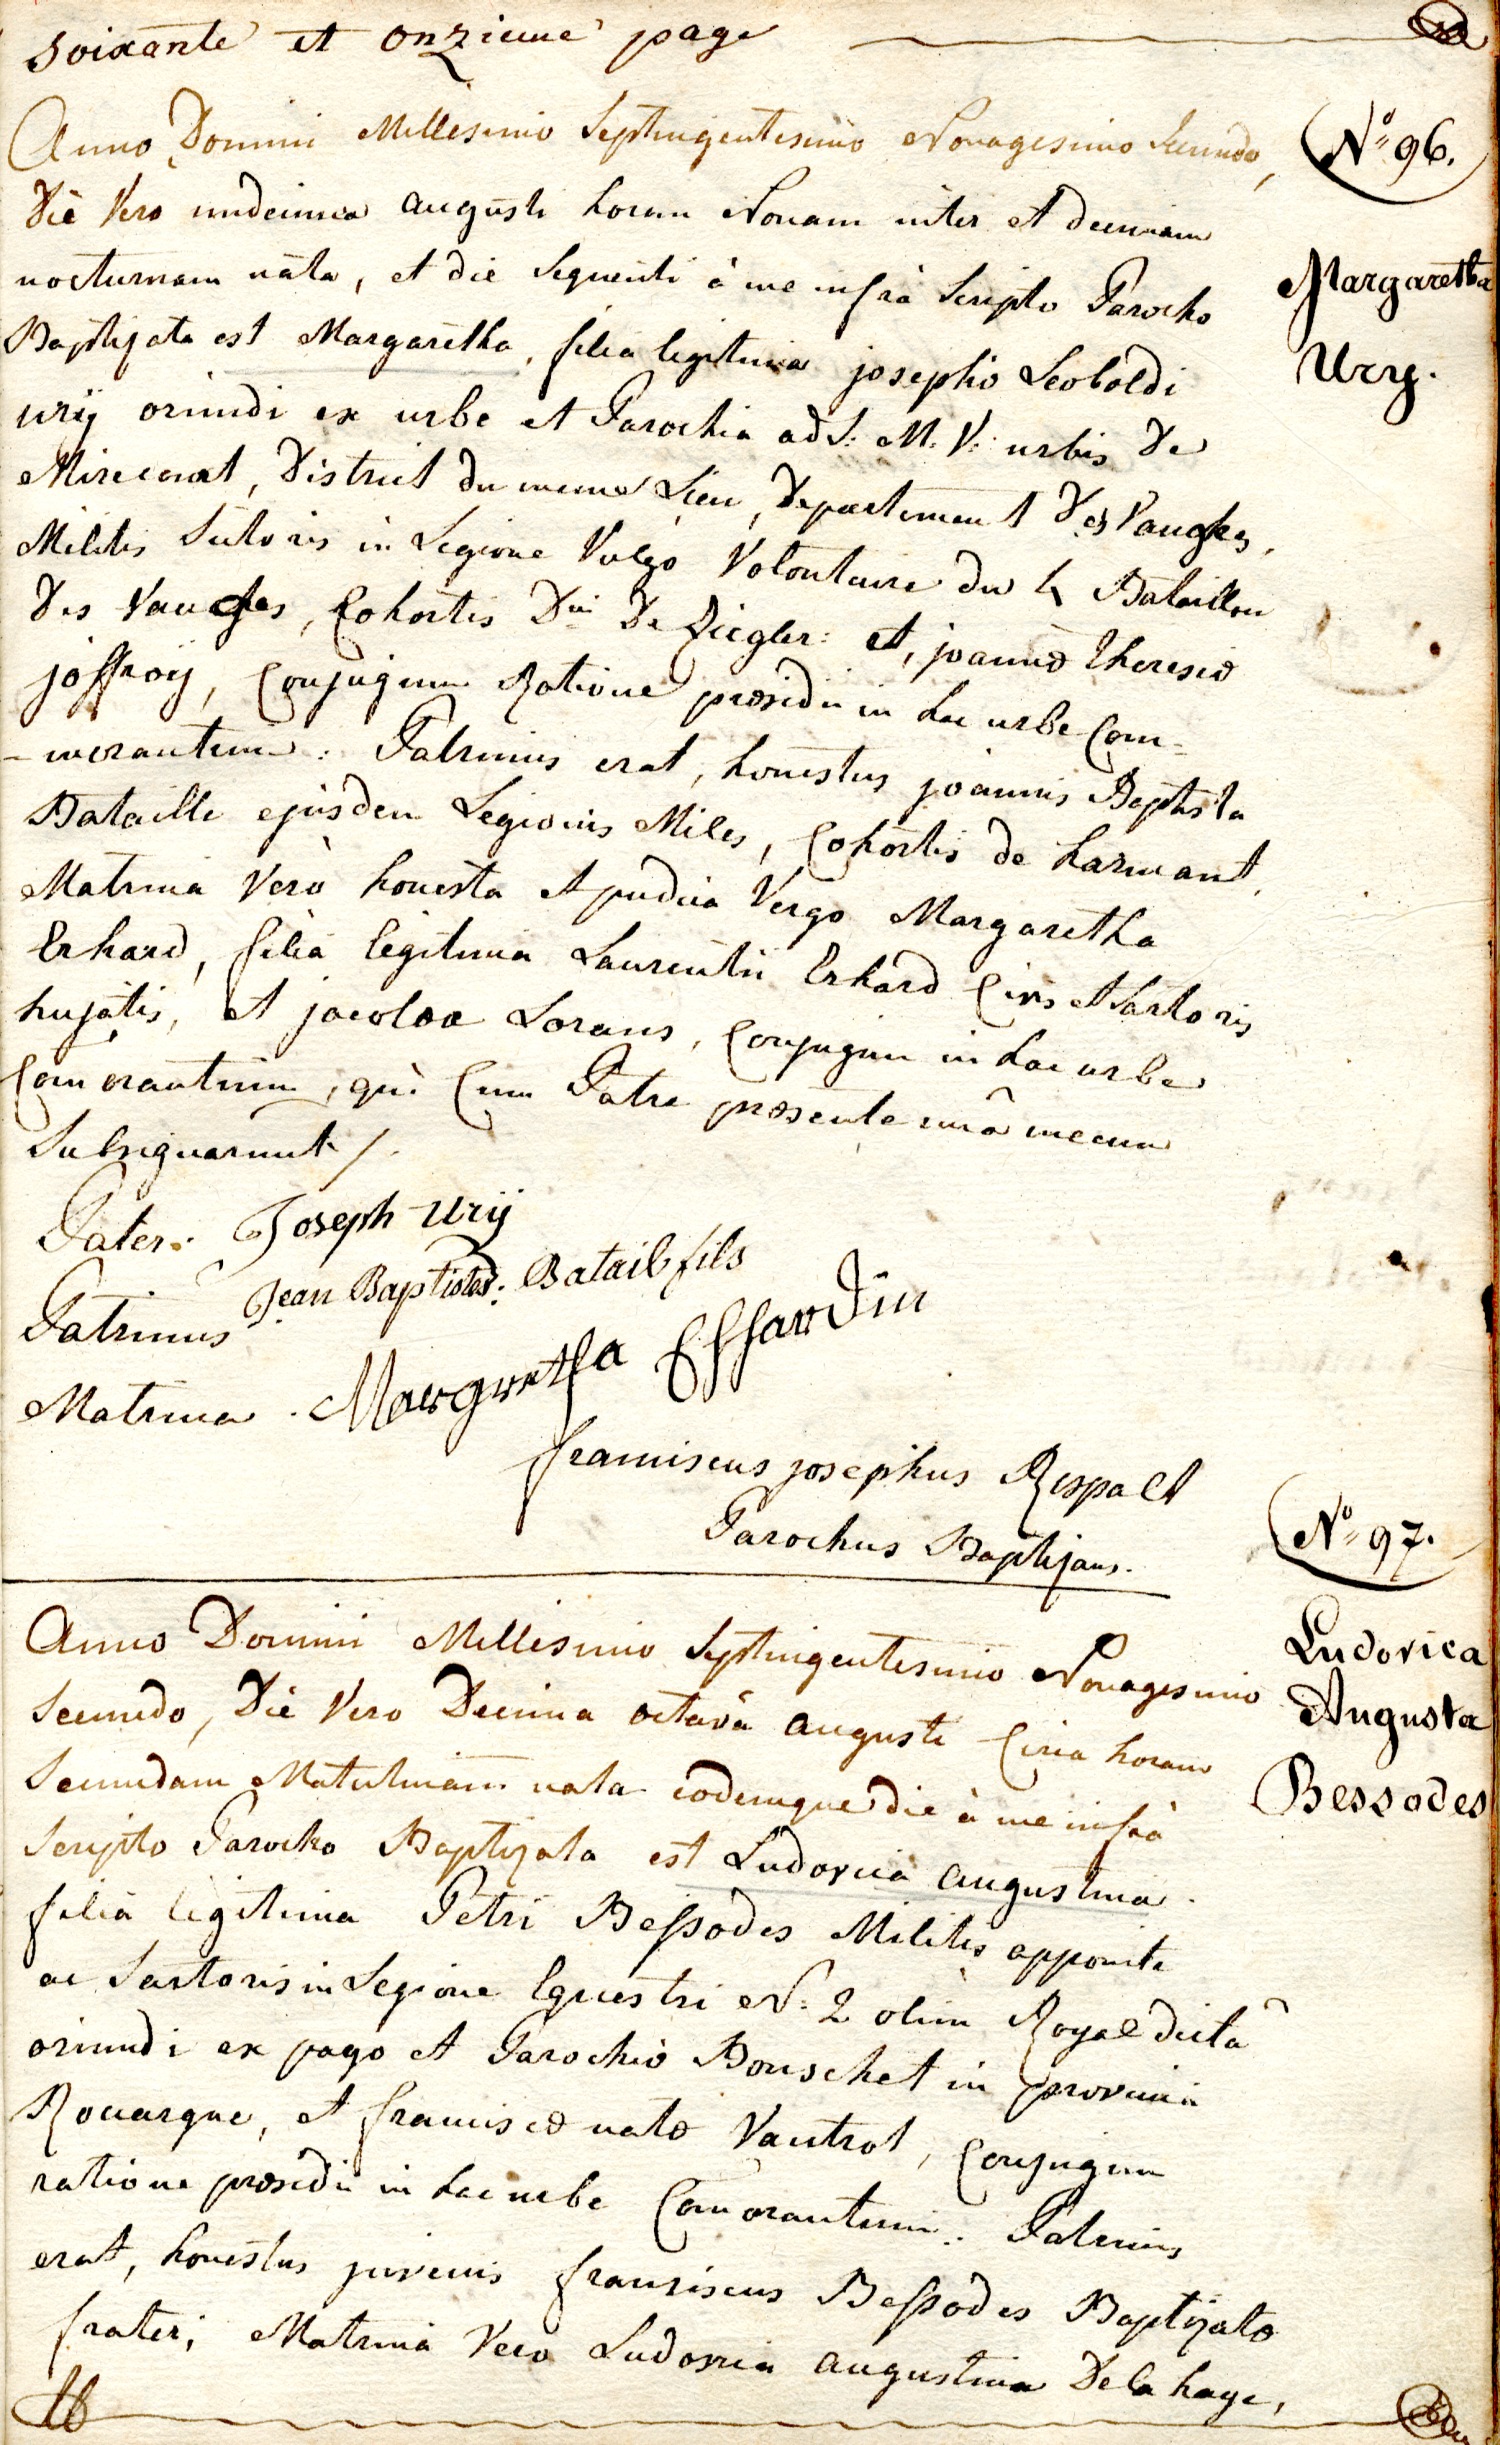 soixante et onzieme page
Anno Domini Millesimo Septingentesimo Nonagesimo Secundo,
Die Vero undecima augusti horam Nonam inter et decimam
nocturnam nata, et die sequenti à me infrà scripto Parocho
Baptizata est Margaretha, filia legitima josephi Leoboldi
urij oriundi ex urbe et Parochia ad S: M: V: urbis De
Mirecourt, District du meme Lieu, Departement Des Vauges,
Militis Sutoris in Legione Vulgo Volontaire du 4 Bataillon
Des Vauges, Cohortis Dni De Ziegler: et, joannæ Theresiæ
joffroij, Conjugum Ratione præsidii in hac urbe Com-
-morantium: Patrinus erat, honestus joannis Baptista
Bataille ejusdem Legionis Miles, Cohortis de harmant,
Matrina Vero honesta et pudica Virgo Margaretha
Erhard, filia legitima Laurentii Erhard Civis et Sartoris
hujatis, et jacobæ Lorans, Conjugum in hac urbe
Comorantium, qui Cum Patre præsente unâ mecum
Subsignarunt /.
Pater: Joseph Urij
Patrinus Jean Baptiste: Batail fils
Matrina. Margretha Ehhardin
franciscus josephus Rispalt
Parochus Baptizans.
No 96.
Margaretha
Ury.
Anno Domini Millesimo Septingentesimo Nonagesimo
Secundo, Die Vero Decima octavâ augusti Circa horam
Secundam Matutinam nata eodemque die à me infrà
scripto Parocho Baptizata est Ludovica augustina.
filia legitima Petri Bessodes Militis
ac Sartoris in Legione Equestri N: 2 olim Royal dictâ
oriundi ex pago et Parochiâ Bouschet in provinciâ
Rouargue, et franciscæ natæ Vautrot, Conjugum
ratione præsidii in hac urbe Comorantium: Patrinus
erat, honestus juvenis franciscus Bessodes Baptizatæ
frater, Matrina Vero Ludovica augustina De la haye,
No 97.
Ludovica
Augusta
Bessodes